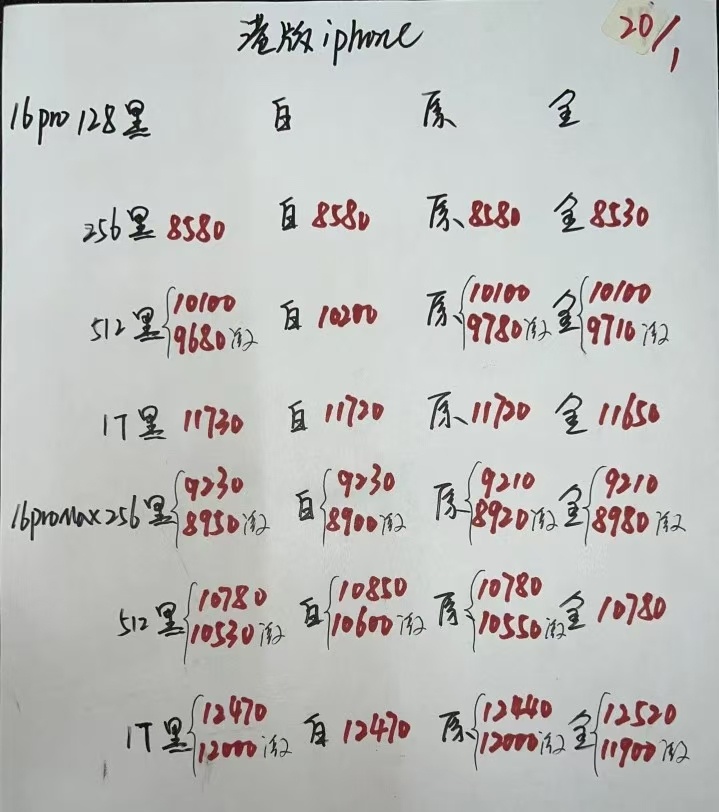 港版iphone 20/1
16pro 128黑 白 原 金
256黑 8580 白 8580 原 8580 金 8530
512黑 10100 白 10200 原 10100 金 10100
9680激 9780激 9710激
1T 黑 11730 白 11720 原 11720 金 11650
16proMax 256黑 9230 白 9230 原 9210 金 9210
8950激 8900激 8920激 8980激
512黑 10780 白 10850 原 10780 金 10780
10530激 10600激 10550激
1T 黑 12470 白 12470 原 12440 金 12520
12000激 12000激 11900激